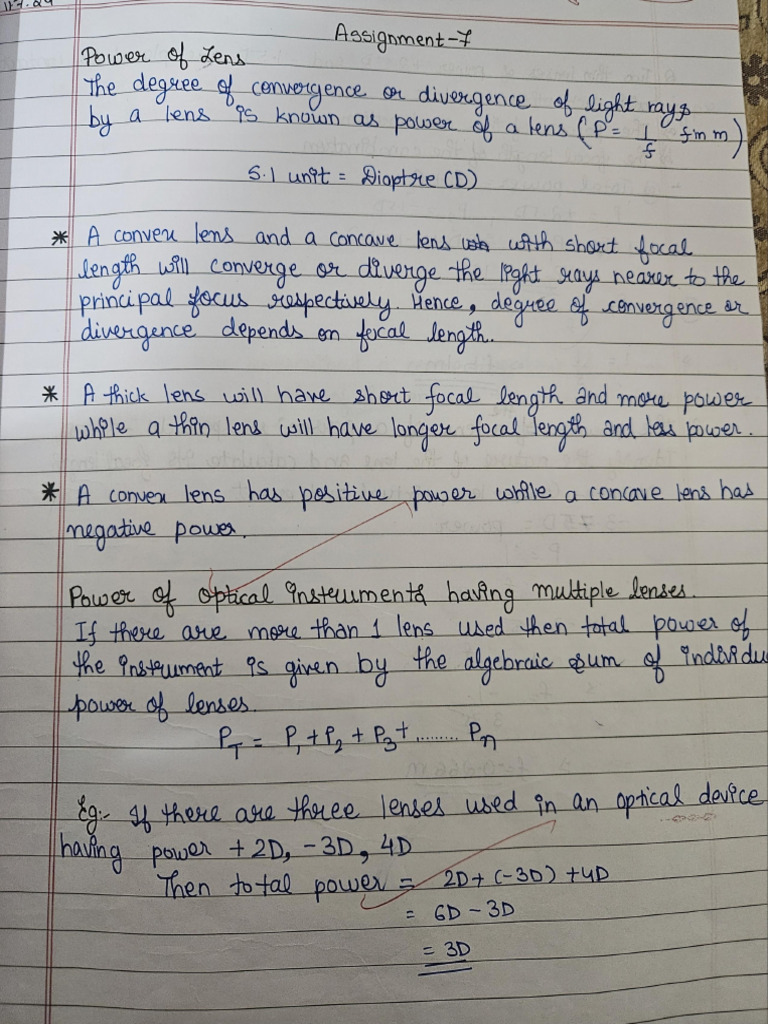 11.7.24
Assignment-7
Power of Lens
The degree of convergence or divergence of light rays
by a lens is known as power of a lens (P = 1/f f in m)
S.I unit = Dioptre (D)
* A convex lens and a concave lens with short focal
length will converge or diverge the light rays nearer to the
principal focus respectively. Hence, degree of convergence or
divergence depends on focal length.
* A thick lens will have short focal length and more power
while a thin lens will have longer focal length and less power.
* A convex lens has positive power while a concave lens has
negative power.
Power of optical instruments having multiple lenses.
If there are more than 1 lens used then total power of
the instrument is given by the algebraic sum of individu
power of lenses.
P_T = P₁ + P₂ + P₃ + ......... Pₙ
Eg:- If there are three lenses used in an optical device
having power + 2D, - 3D, 4D
Then total power = 2D + (-3D) + 4D
= 6D - 3D
= 3D